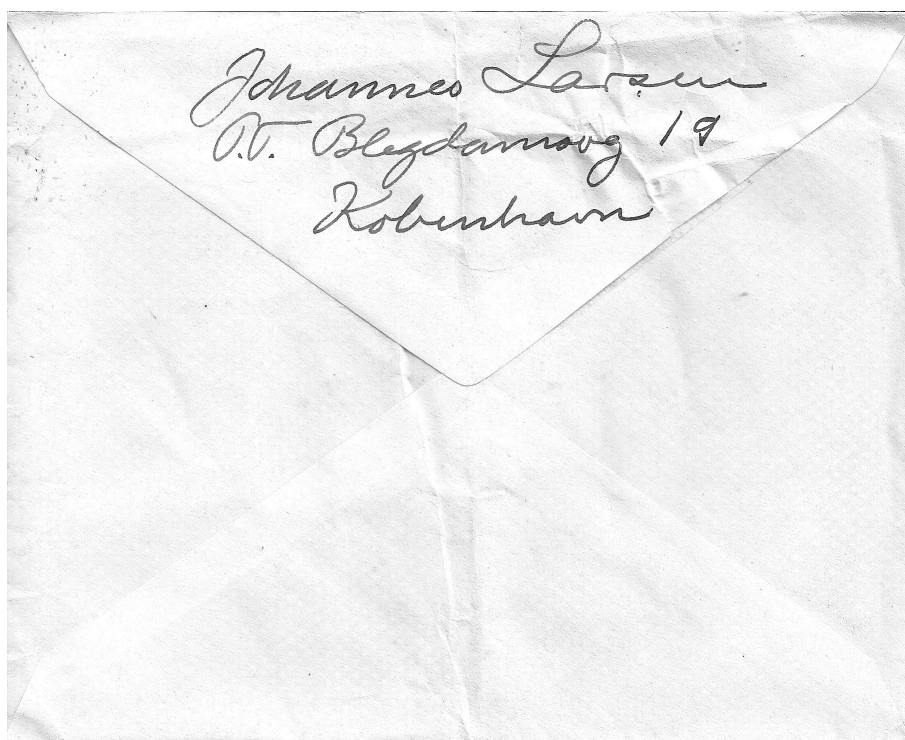 Johannes Larsen
P.T. Blegdamsvg 19
København